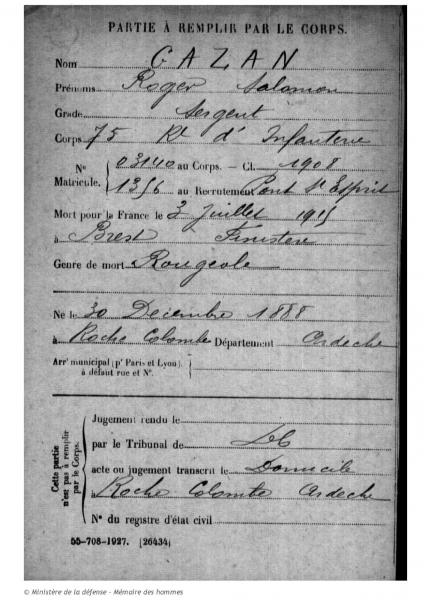 PARTIE À REMPLIR PAR LE CORPS.
Nom CAZAN
Prénoms Roger Salomon
Grade Sergent
Corps 75 Rt d' Infanterie
N° Matricule. 03140 au Corps. — Cl. 1908
1356 au Recrutement Pont St Esprit
Mort pour la France le 3 Juillet 1915
à Brest Finistère
Genre de mort Rougeole
Né le 30 Décembre 1888
à Roche Colombe Département Ardèche
Arrt municipal (pr Paris et Lyon),
à défaut rue et N°.
Cette partie n'est pas à remplir par le Corps.
Jugement rendu le
par le Tribunal de
acte ou jugement transcrit le Domicile
à Roche Colombe Ardèche
N° du registre d'état civil
55-708-1927. [26434]
© Ministère de la défense - Mémoire des hommes